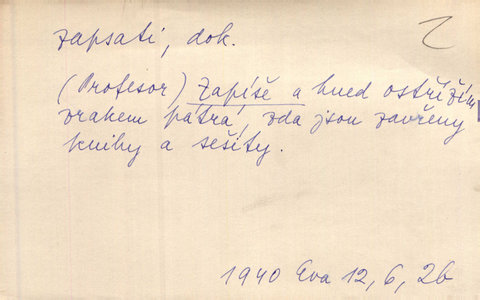 zapsati, dok.
(Profesor) Zapíše a hned ostřížím
zrakem pátrá, zda jsou zavřeny
knihy a sešity.
1940 Eva 12, 6, 26